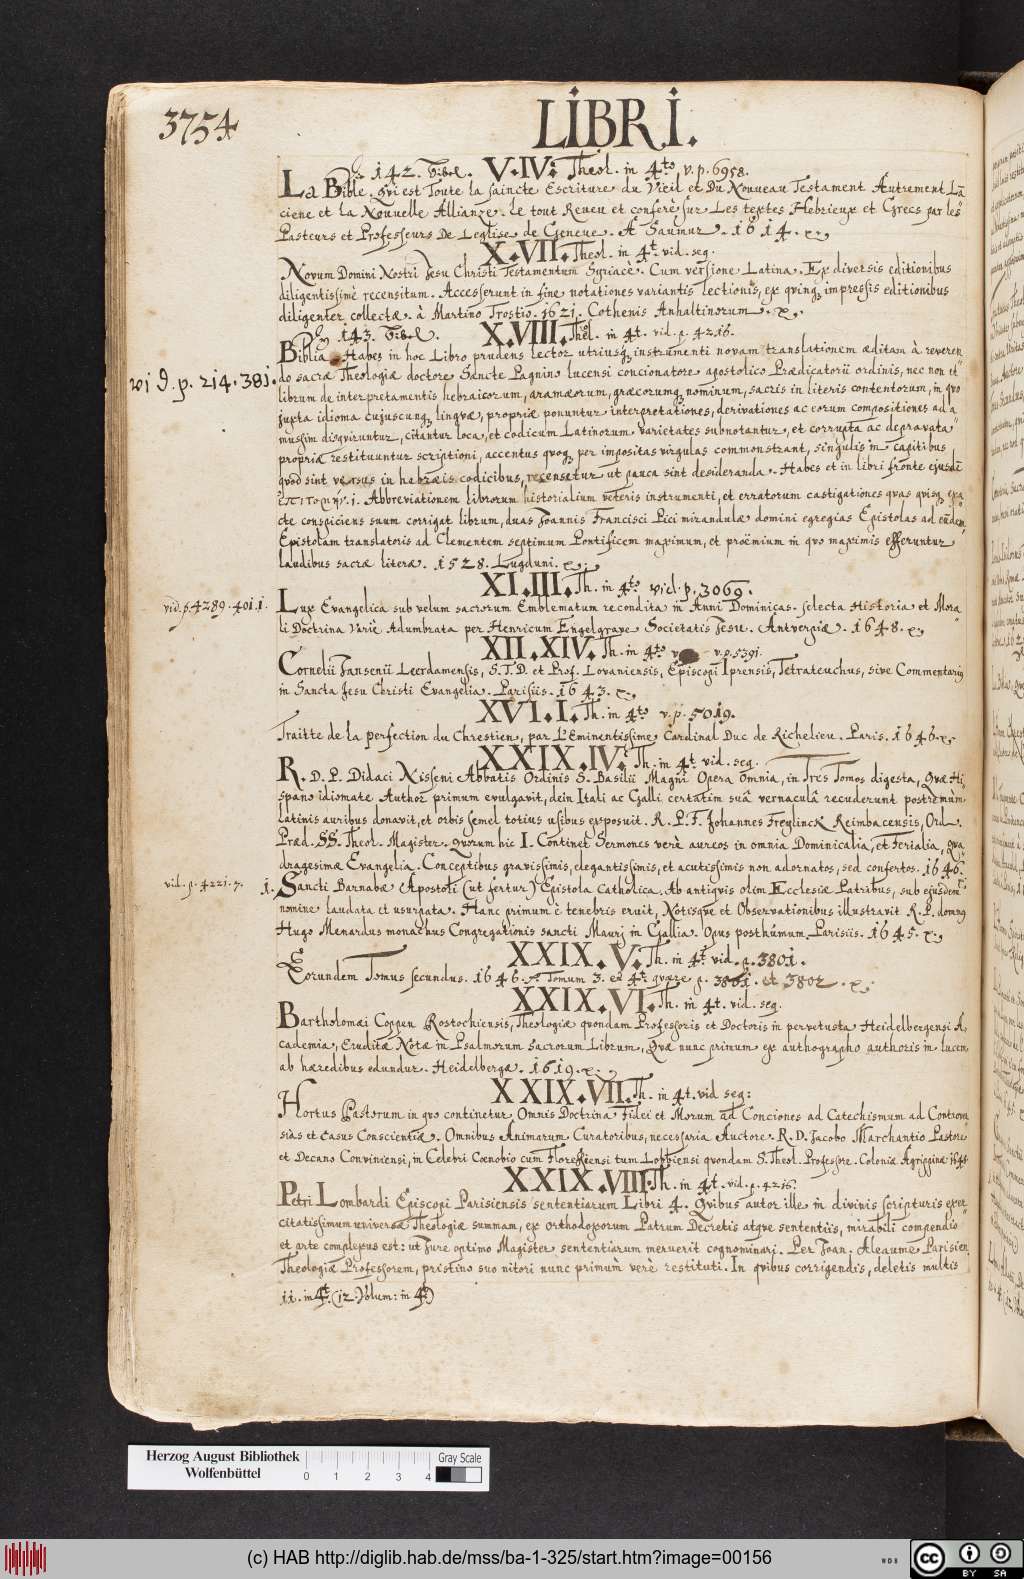 3754
LIBRI.
142. Bibel. V.IV: Theol. in 4to v. p. 6958.
La Bible. Qvi est Toute la saincte Escriture du Vieil et Du Nouveau Testament Autrement L'ã
ciene et la Nouvelle Allianze. le tout Reveu et conferè sur Les textes Hebrieux et Grecs par les
Pasteurs et Professeurs De L'eglise de Geneve. A Saumur. 1614.
X.VII. Theol. in 4t. vid. seg.
Novum Domini Nostri Jesu Christi Testamentum Syriacè. Cum versione Latina. Ex diversis editionibus
diligentissimè recensitum. Accesserunt in fine notationes variantis lectionis, ex qvinq impressis editionibus
diligenter collectæ. à Martino Trostio. 1621. Cothenis Anhaltinorum.
143. Bibel. X.VIII. Theol. in 4t. vid. p. 4216.
Biblia Habes in hoc Libro prudens lector utriusq instrumenti novam translationem æditam à reveren
vid. p. 214. 381.
do sacræ Theologiæ doctore Sancte Pagnino lucensi concionatore apostolico Prædicatorii ordinis, nec non et
librum de interpretamentis hebraicorum, aramæorum, græcorumq nominum, sacris in literis contentorum, in qvo
juxta idioma cujuscunq lingvæ, propriæ ponuntur interpretationes, derivationes ac eorum compositiones ad a
mussim disqviruntur, citantur loca, et codicum Latinorum varietates subnotantur, et corrupta ac depravata
propriæ restituuntur scriptioni, accentus qvoq per impositas virgulas commonstrant, singulis in capitibus
qvod sint versus in habræis codicibus, recensetur ut pauca sint desideranda. Habes et in libri fronte ejusdẽ
i. Abbreviationem librorum historialium veteris instrumenti, et erratorum castigationes qvas qvisq exa
cte conspiciens suum corrigat librum, duas Joannis Francisci Pici mirandulæ domini egregias Epistolas ad eũdem
Epistolam translatoris ad Clementem septimum Pontificem maximum, et proëmium in qvo maximis efferuntur
laudibus sacræ literæ. 1528. Lugduni.
XI.III. Th. in 4to vid. p. 3069.
vid. p. 4289. 401.1.
Lux Evangelica sub velum sacrorum Emblematum recondita in Anni Dominicas. selecta Historia et Mora
li Doctrina Variè Adumbrata per Henricum Engelgrave Societatis Jesu. Antverpiæ. 1648.
XII.XIV. Th. in 4to v. p. 5391.
Cornelii Jansenii Leerdamensis, S.T.D. et Prof. Lovaniensis, Episcopi Iprensis, Tetrateuchus, sive Commentariq
in Sancta Jesu Christi Evangelia. Parisiis. 1643.
XVI.I. Th. in 4to v. p. 5019.
Traitte de la perfection du Chrestien, par L'Eminentissime Cardinal Duc de Richelieu. Paris. 1646.
XXIX.IV. Th. in 4t. vid. seg.
R. D. P. Didaci Nisseni Abbatis Ordinis S. Basilii Magni Opera Omnia, in Tres Tomos digesta, Qvæ Hi
spano idiomate Author primum evulgavit, dein Itali ac Galli certatim suâ vernaculâ recuderunt postremùm
latinis auribus donavit, et orbis semel totius usibus exposuit. R. P. F. Johannes Freylinck Reimbacensis, Ord.
Præd. SS. Theol. Magister. qvorum hic I. Continet Sermones verè aureos in omnia Dominicalia, et Ferialia, Qva
dragesimæ Evangelia. Conceptibus gravissimis, elegantissimis, et acutissimis non adornatos, sed confertos. 1646.
vid. p. 4221. 7.
1. Sancti Barnabæ Apostoli (ut fertur) Epistola Catholica. Ab antiqvis olim Ecclesiæ Patribus, sub ejusdem
nomine laudata et usurpata. Hanc primum è tenebris eruit, Notisque et Observationibus illustravit R. P. domnq
Hugo Menardus monachus Congregationis sancti Mauri in Gallia. Opus posthúmum. Parisiis. 1645.
XXIX.V. Th. in 4t. vid. p. 3801.
Eorundem Tomus secundus. 1646. Tomum 3. ex 4t qvære p. 3801. et 3802.
XXIX.VI. Th. in 4t. vid. seg.
Bartholomæi Coppen Rostochiensis, Theologiæ qvondam Professoris et Doctoris in pervetusta Heidelbergensi A
cademia, Eruditæ Notæ in Psalmorum Sacrorum Librum, Qvæ nunc primum ex authographo authoris in lucem
ab hæredibus edundur. Heidelbergæ. 1619.
XXIX.VII. Th. in 4t. vid seg:
Hortus Pastorum in qvo continetur Omnis Doctrina Fidei et Morum ad Conciones ad Catechismum ad Controver
sias et Casus Conscientiæ. Omnibus Animarum Curatoribus, necessaria Auctore. R. D. Jacobo Marchantio Pastore
et Decano Conviniensi, in Celebri Cœnobio cum Floreffiensi tum Lobbiensi qvondam S. Theol. Professore. Coloniæ Agrippinæ 1643
XXIX.VIII. Th. in 4t. vid. p. 4216.
Petri Lombardi Episcopi Parisiensis sententiarum Libri 4. Qvibus autor ille in divinis scripturis exer
citatissimum universæ Theologiæ summam, ex orthodoxorum Patrum Decretis atqve sententiis, mirabili compendio
et arte complexus est: ut Jure optimo Magister sententiarum meruerit cognominari. Per Joan. Aleaume Parisien
Theologiæ Professorem, pristino suo nitori nunc primum verè restituti. In qvibus corrigendis, deletis multis
11. in 4t. (12. Volum: in 4t)
Herzog August Bibliothek
Wolfenbüttel
0 1 2 3 4
Gray Scale
(c) HAB http://diglib.hab.de/mss/ba-1-325/start.htm?image=00156
WDB
cc BY SA